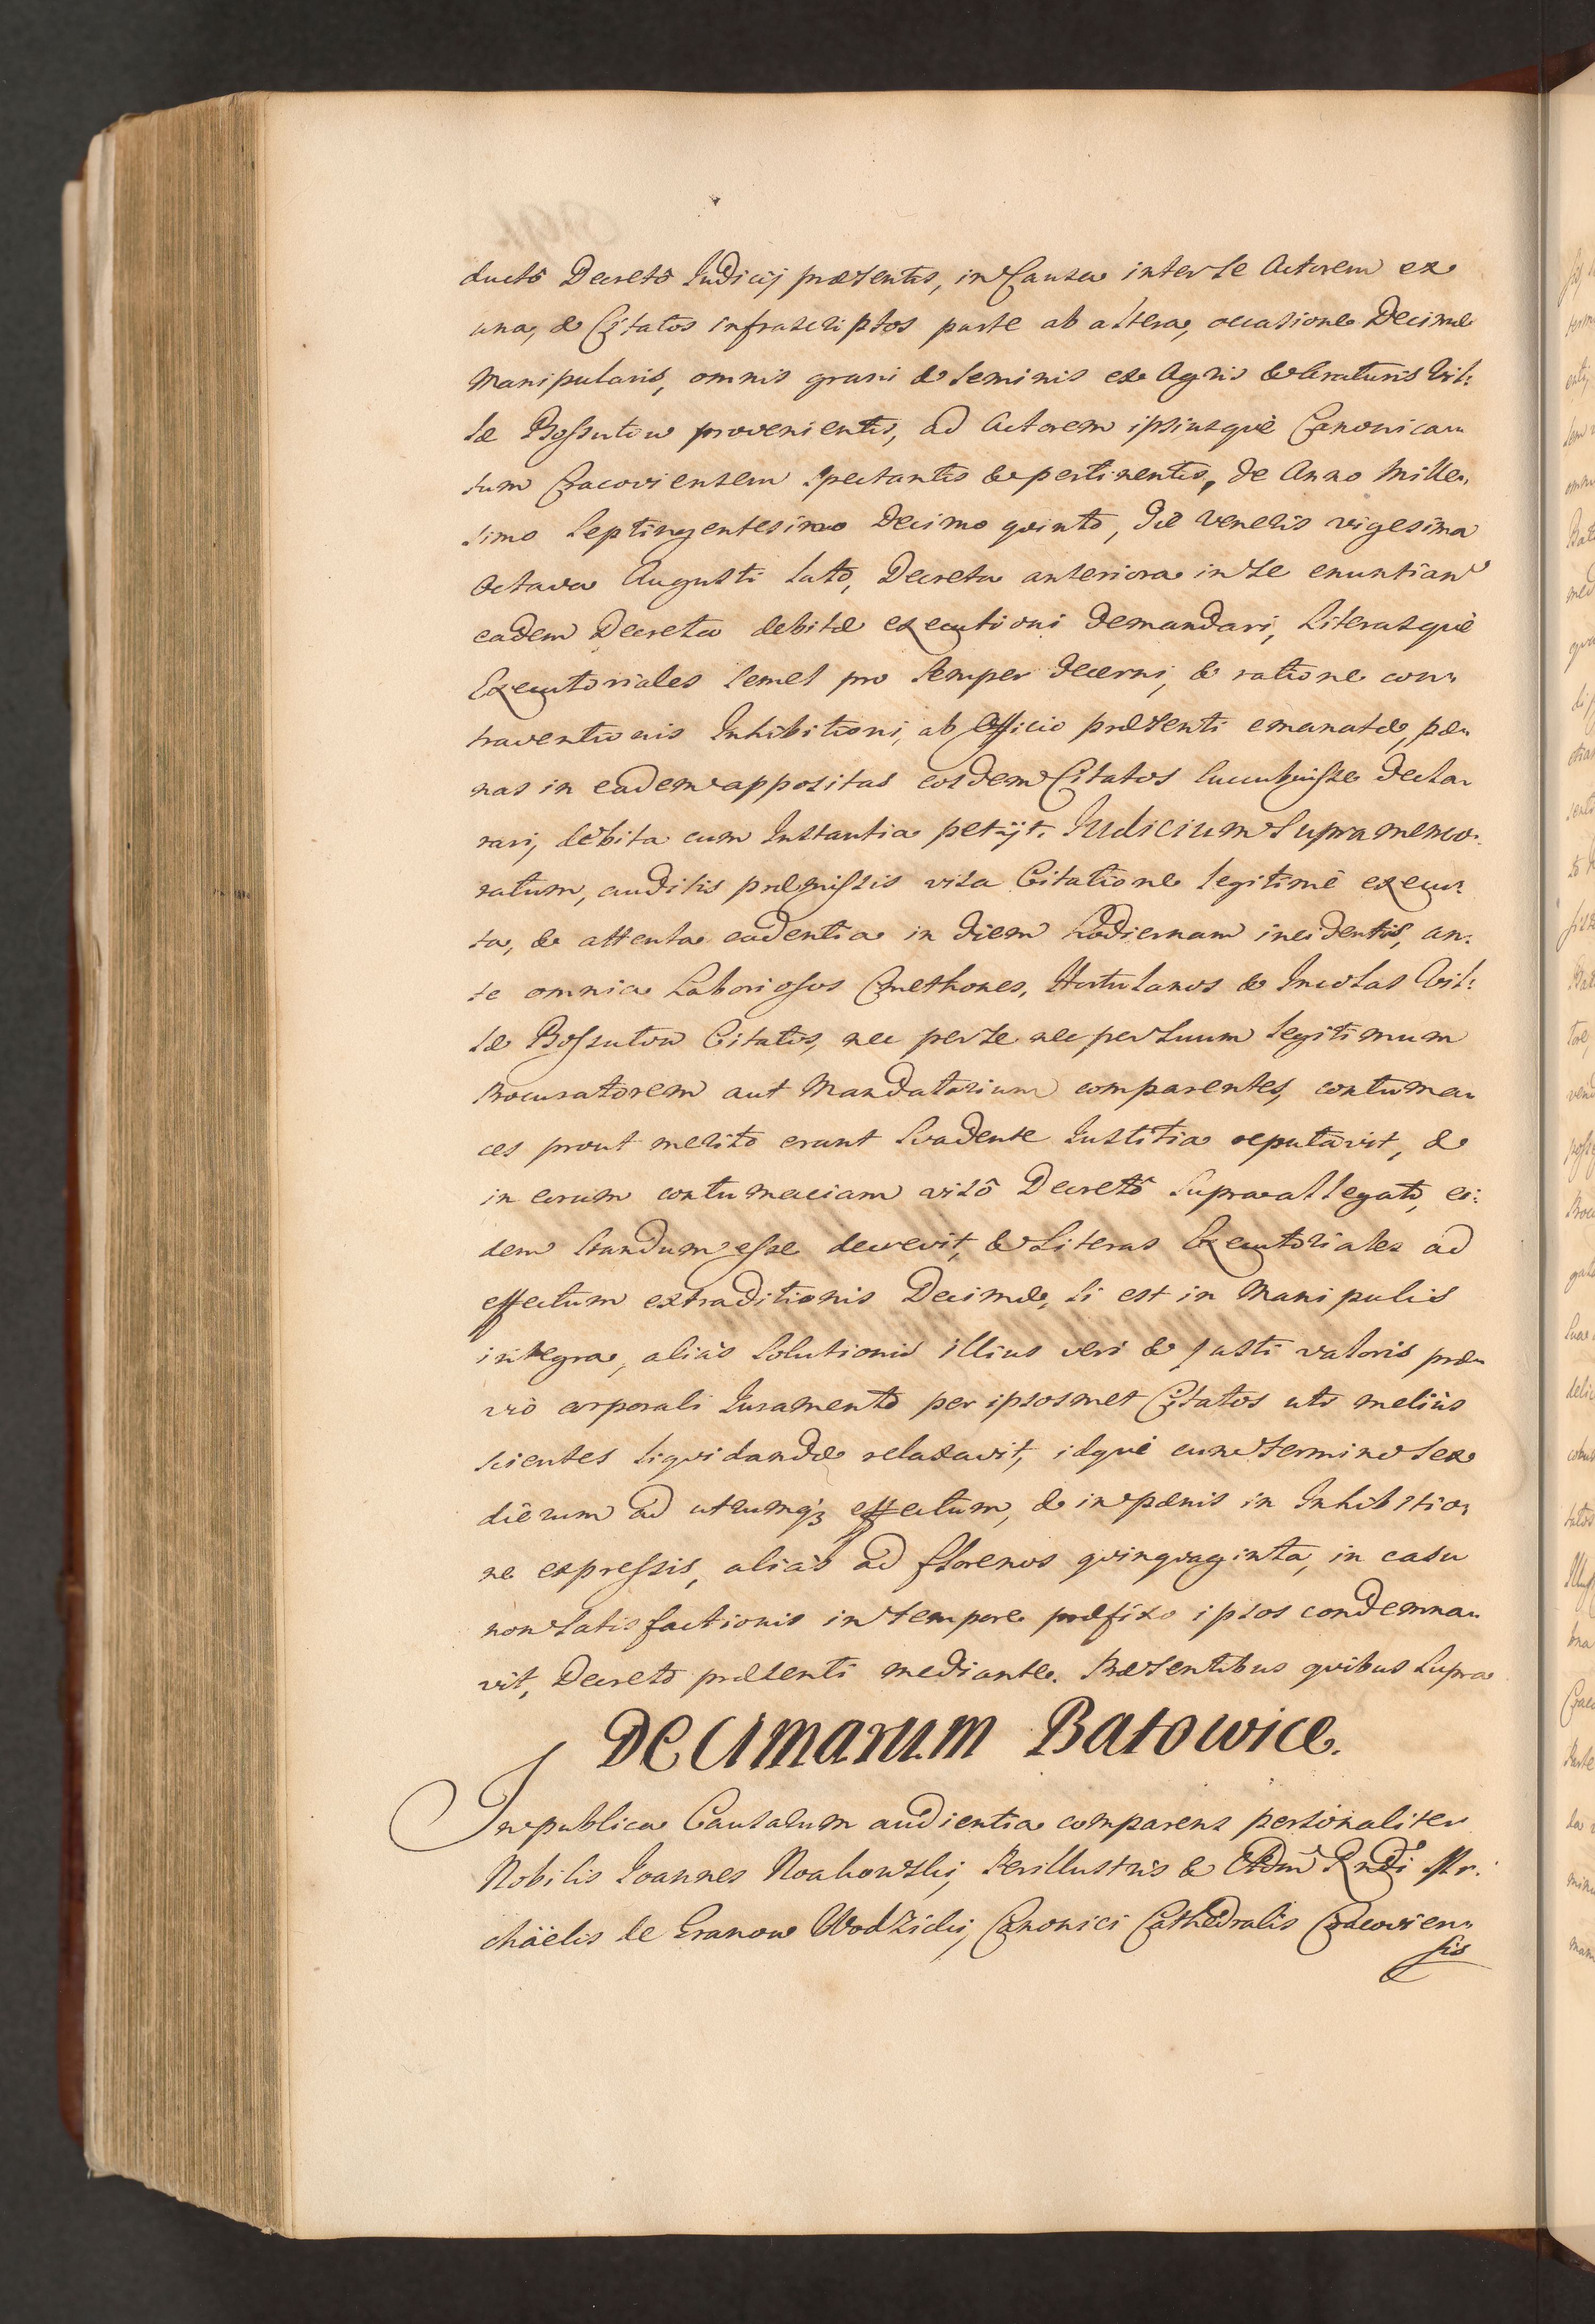 ductô Decretô Iudicij præsentis, in Causa inter se Actorem ex
una, & Citatos infrascriptos parte ab altera, occasione Decimæ
Manipularis, omnis grani & seminis ex Agris & Araturis Vil:
læ Bossutow provenientis, ad Actorem ipsiusquè Canonica„
tum Cracoviensem spectantis & pertinentis, de Anno Mille„
simo Septingentesimo Decimo quinto, die Veneris vigesima
Octava Augusti lato, Decreta anteriora in se enuntian
eadem Decreta debitæ executioni demandari, Literasquè
Executoriales semel pro semper decerni, & ratione con„
traventionis Inhibitioni, ab Officio præsenti emanatæ, pæ„
nas in eadem appositas eosdem Citatos succubuisse decla„
rari, debita cum Instantia petijt. Iudicium Supramemo„
ratum, auditis præmissis visa Citatione legitimè execu„
ta, & attenta cadentia in diem hodiernam incidentis, an:
te omnia Laboriosos Cmethones, Hortulanos & Incolas Vil:
læ Bossutow Citatos, nec per se nec per suum legitimum
Procuratorem aut Mandatarium comparentes, contuma„
ces prout merito erant suadente Iustitia reputavit, &
in eorum contumaciam visô Decretô supra allegato, ei:
dem standum esse decrevit, & Literas Executoriales ad
effectum extraditionis Decimæ, si est in Manipulis
integra, aliàs solutionis illius veri & justi valoris præ„
viò corporali Iuramento per ipsosmet Citatos uti meliùs
scientes liquidandæ relaxavit, idquè cum termino sex
dierum ad utrumq3 effectum, & in pænis in Inhibitio„
ne expressis, aliàs ad florenos quinquaginta, in casu
non satisfactionis in tempore præfixo ipsos condemna„
vit, Decreto præsenti mediante. Præsentibus quibus supra
Decimarum Batowice.
In publica Causarum audientia comparens personaliter
Nobilis Ioannes Noakowskij, Perillustris & Rndi Mi:
chäelis de Granow Wodzicki, Canonici Cathedralis Cracovien„
sis